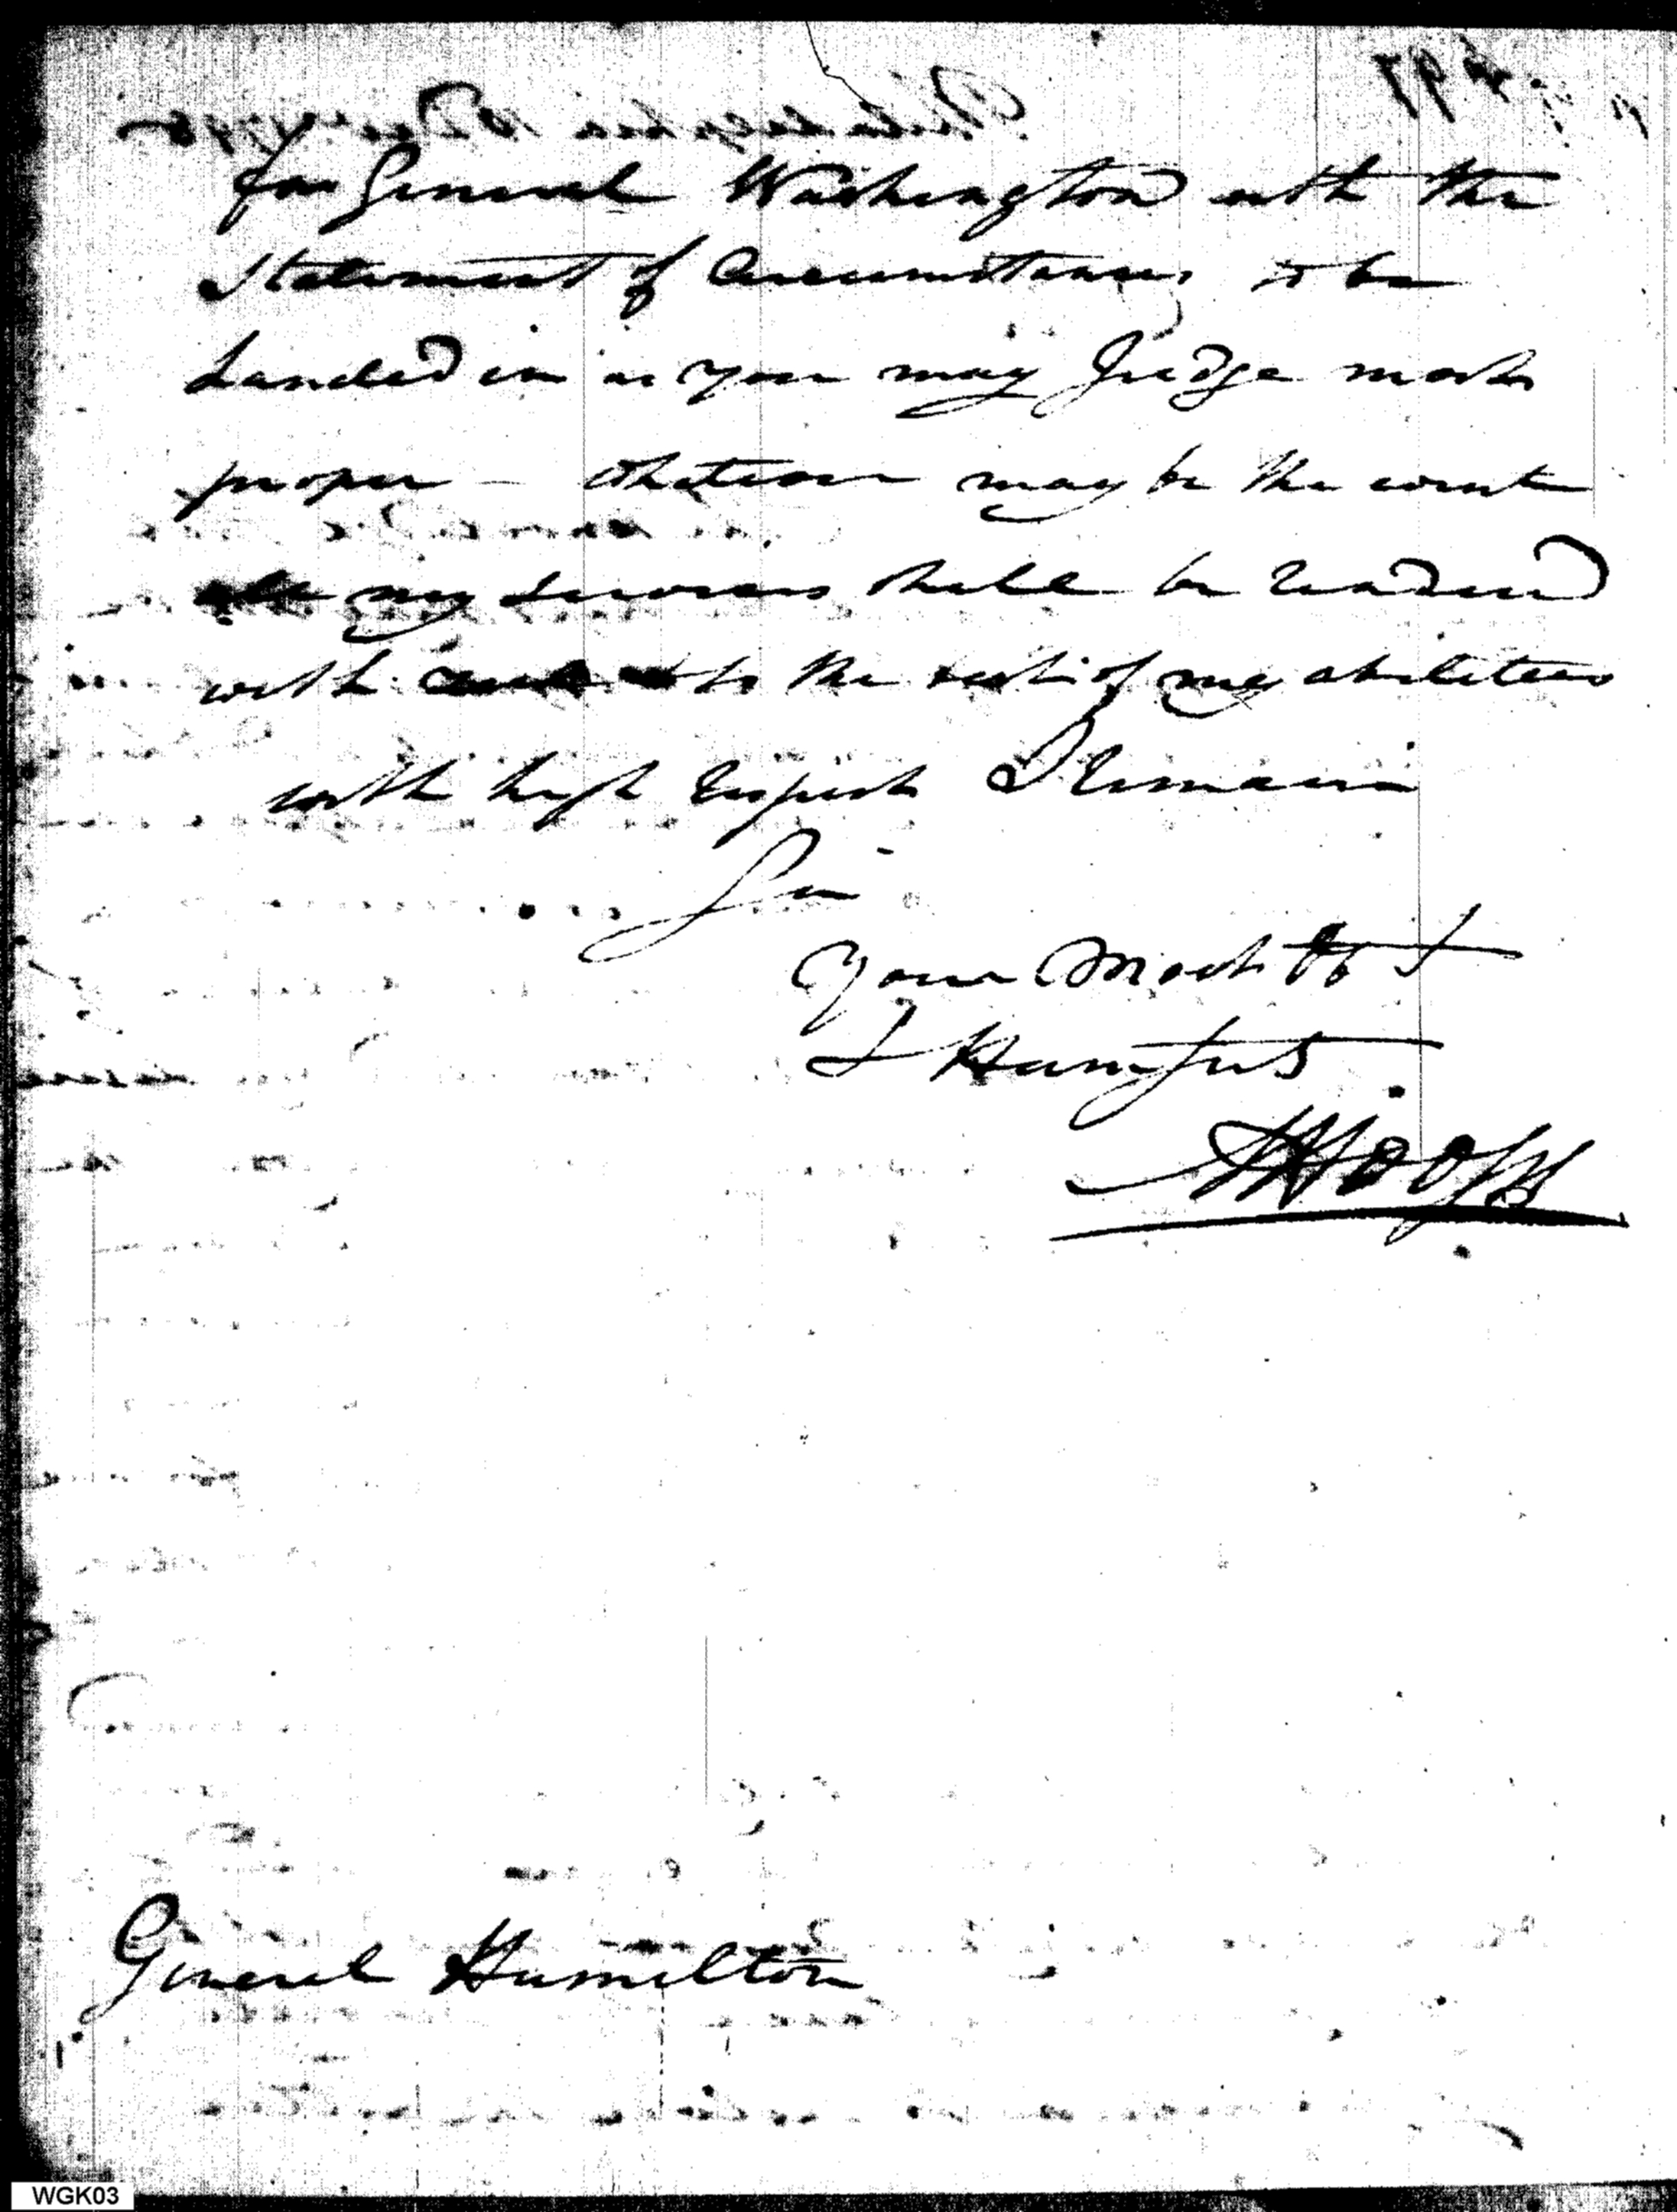 for General Washington with the
Statement of Circumstances to be
handed in as you may Judge most
proper — Whatever may be the event
all my services shall be rendered
with to the best of my abilities
with high respect I remain
Sir
Your Most Ob t
& Hum Sert
A Hoops
General Hamilton
WGK03